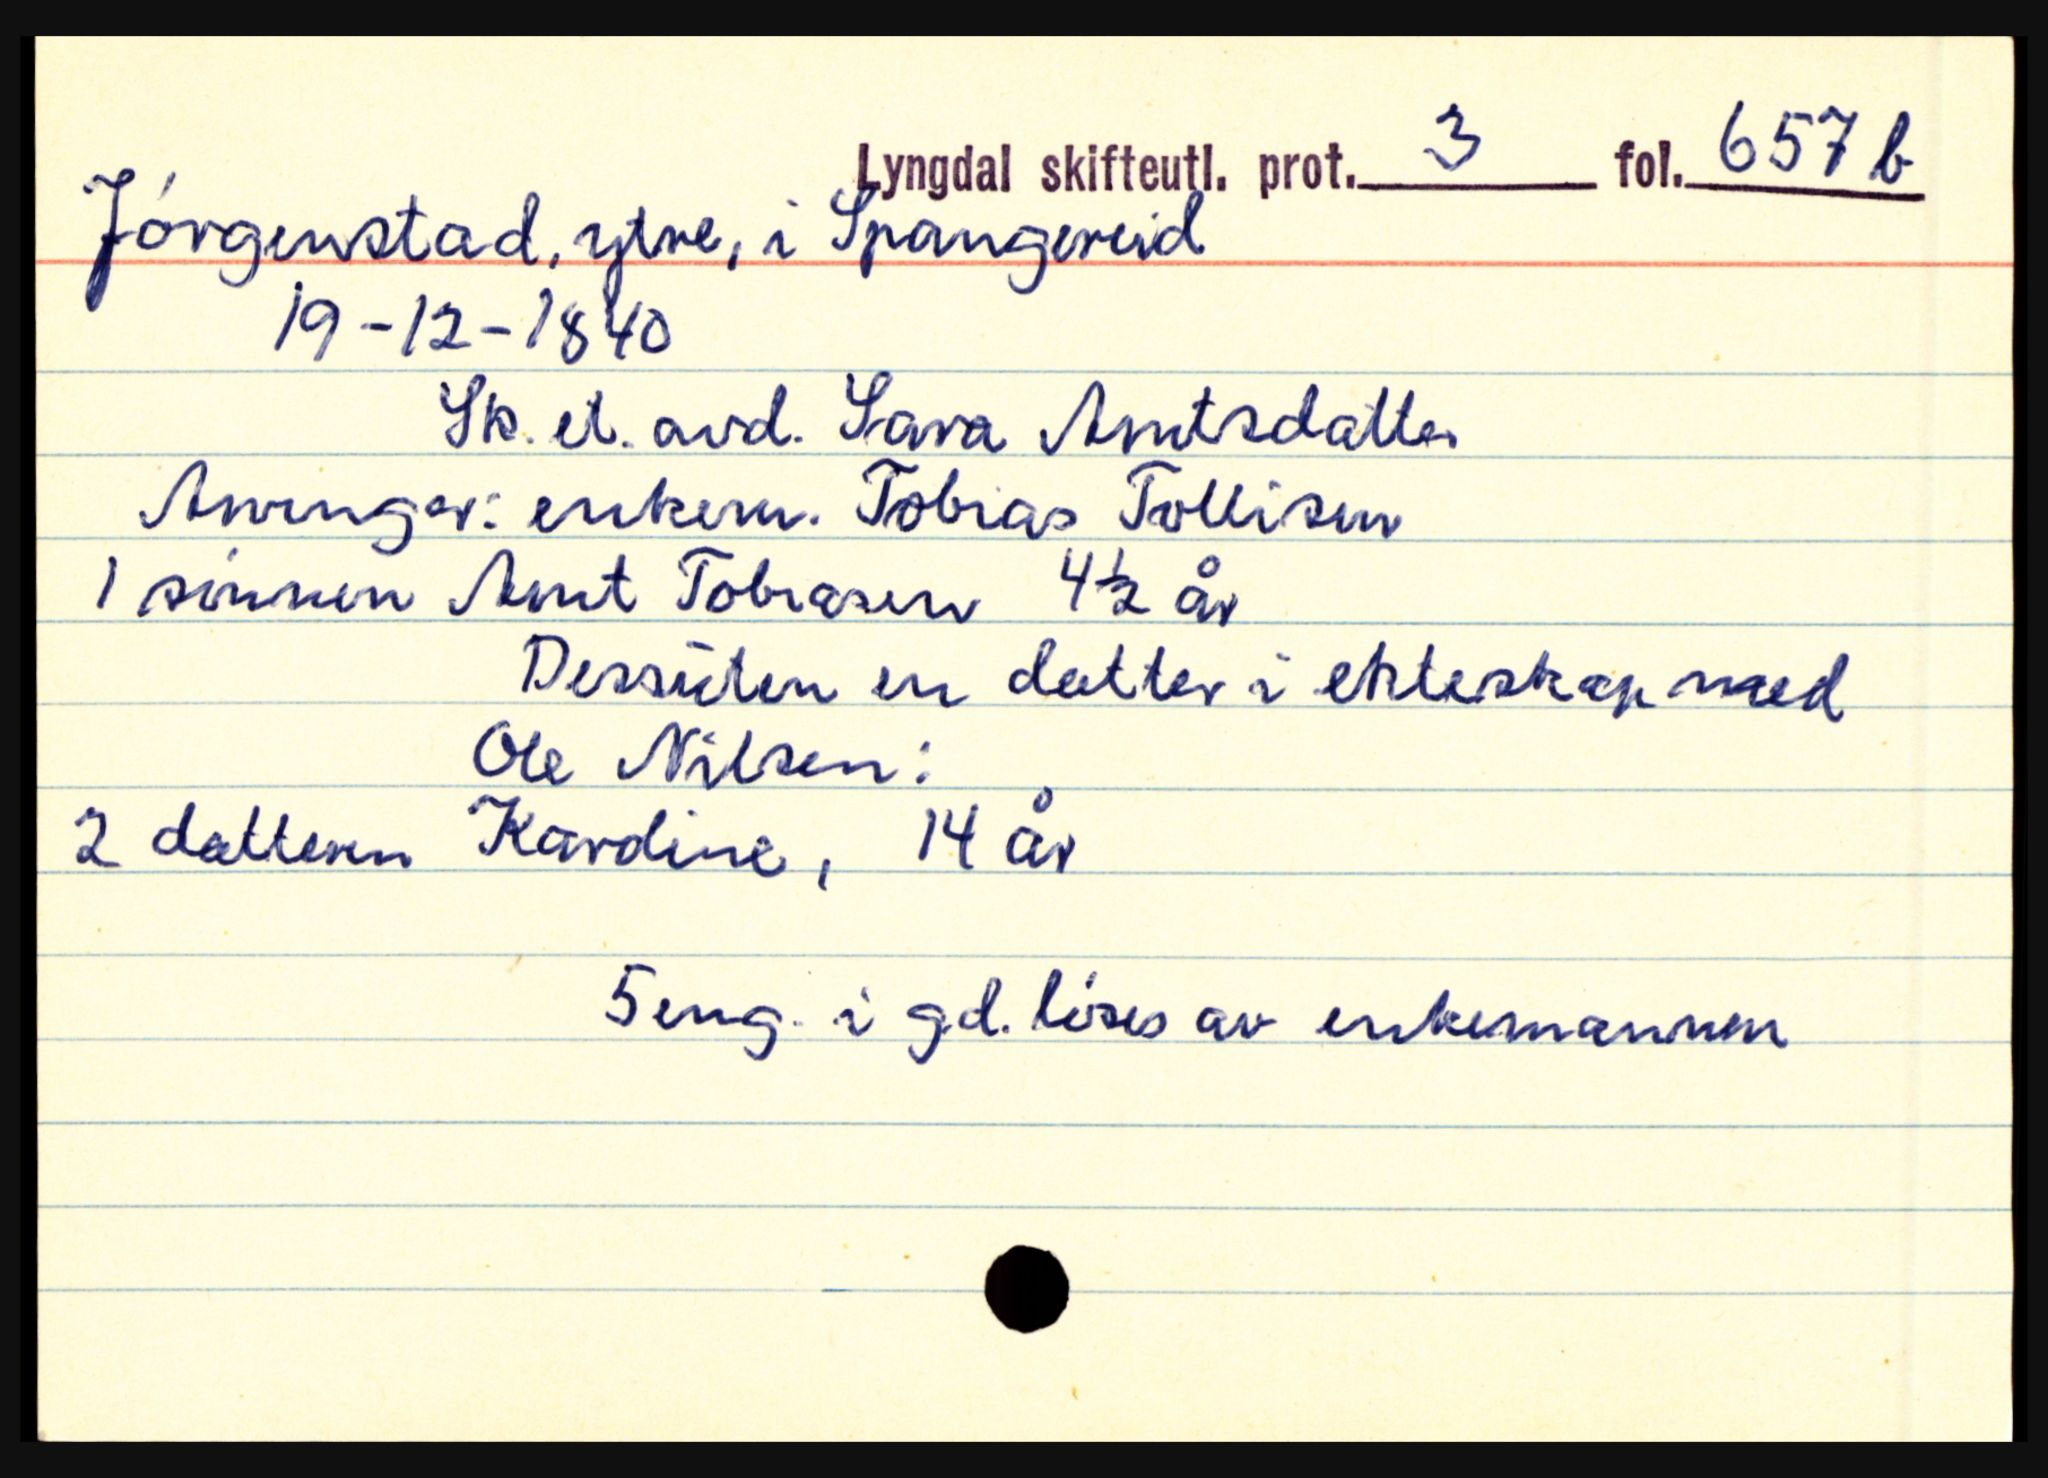 Lyngdal skifteutl. prot. 3 fol. 657 b
Jórgenstad, ytre, i Spangereid
19-12-1840
Sk. et. avd. Sara Amtsdatter
Arvinger: enkem. Tobias Tollisen
1 sónnen Amt Tobiasen 4½ år
Dessūten en datter i ekteskap med
Ole Nilsen:
2 datteren Kardine, 14 år
5 eng. i gd. lóses av enkemannen